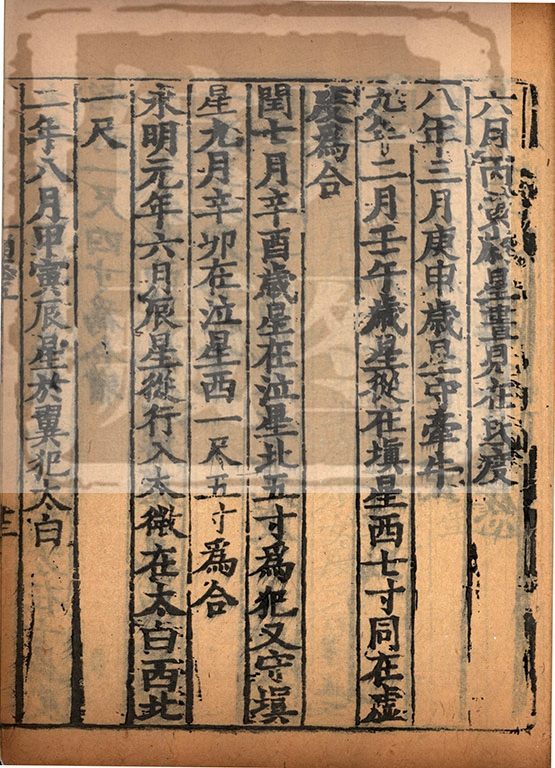 六月丙歲星晝見在氐度
八年三月庚申歲星守牽牛
九年二月壬午歲星從在塡星西七寸同在虛
度爲合
閏七月辛酉歲星在泣星北五寸爲犯又守塡
星九月辛卯在泣星西一尺五寸爲合
永明元年六月辰星從行入太微在太白西北
一尺
二年八月甲寅辰星於翼犯太白